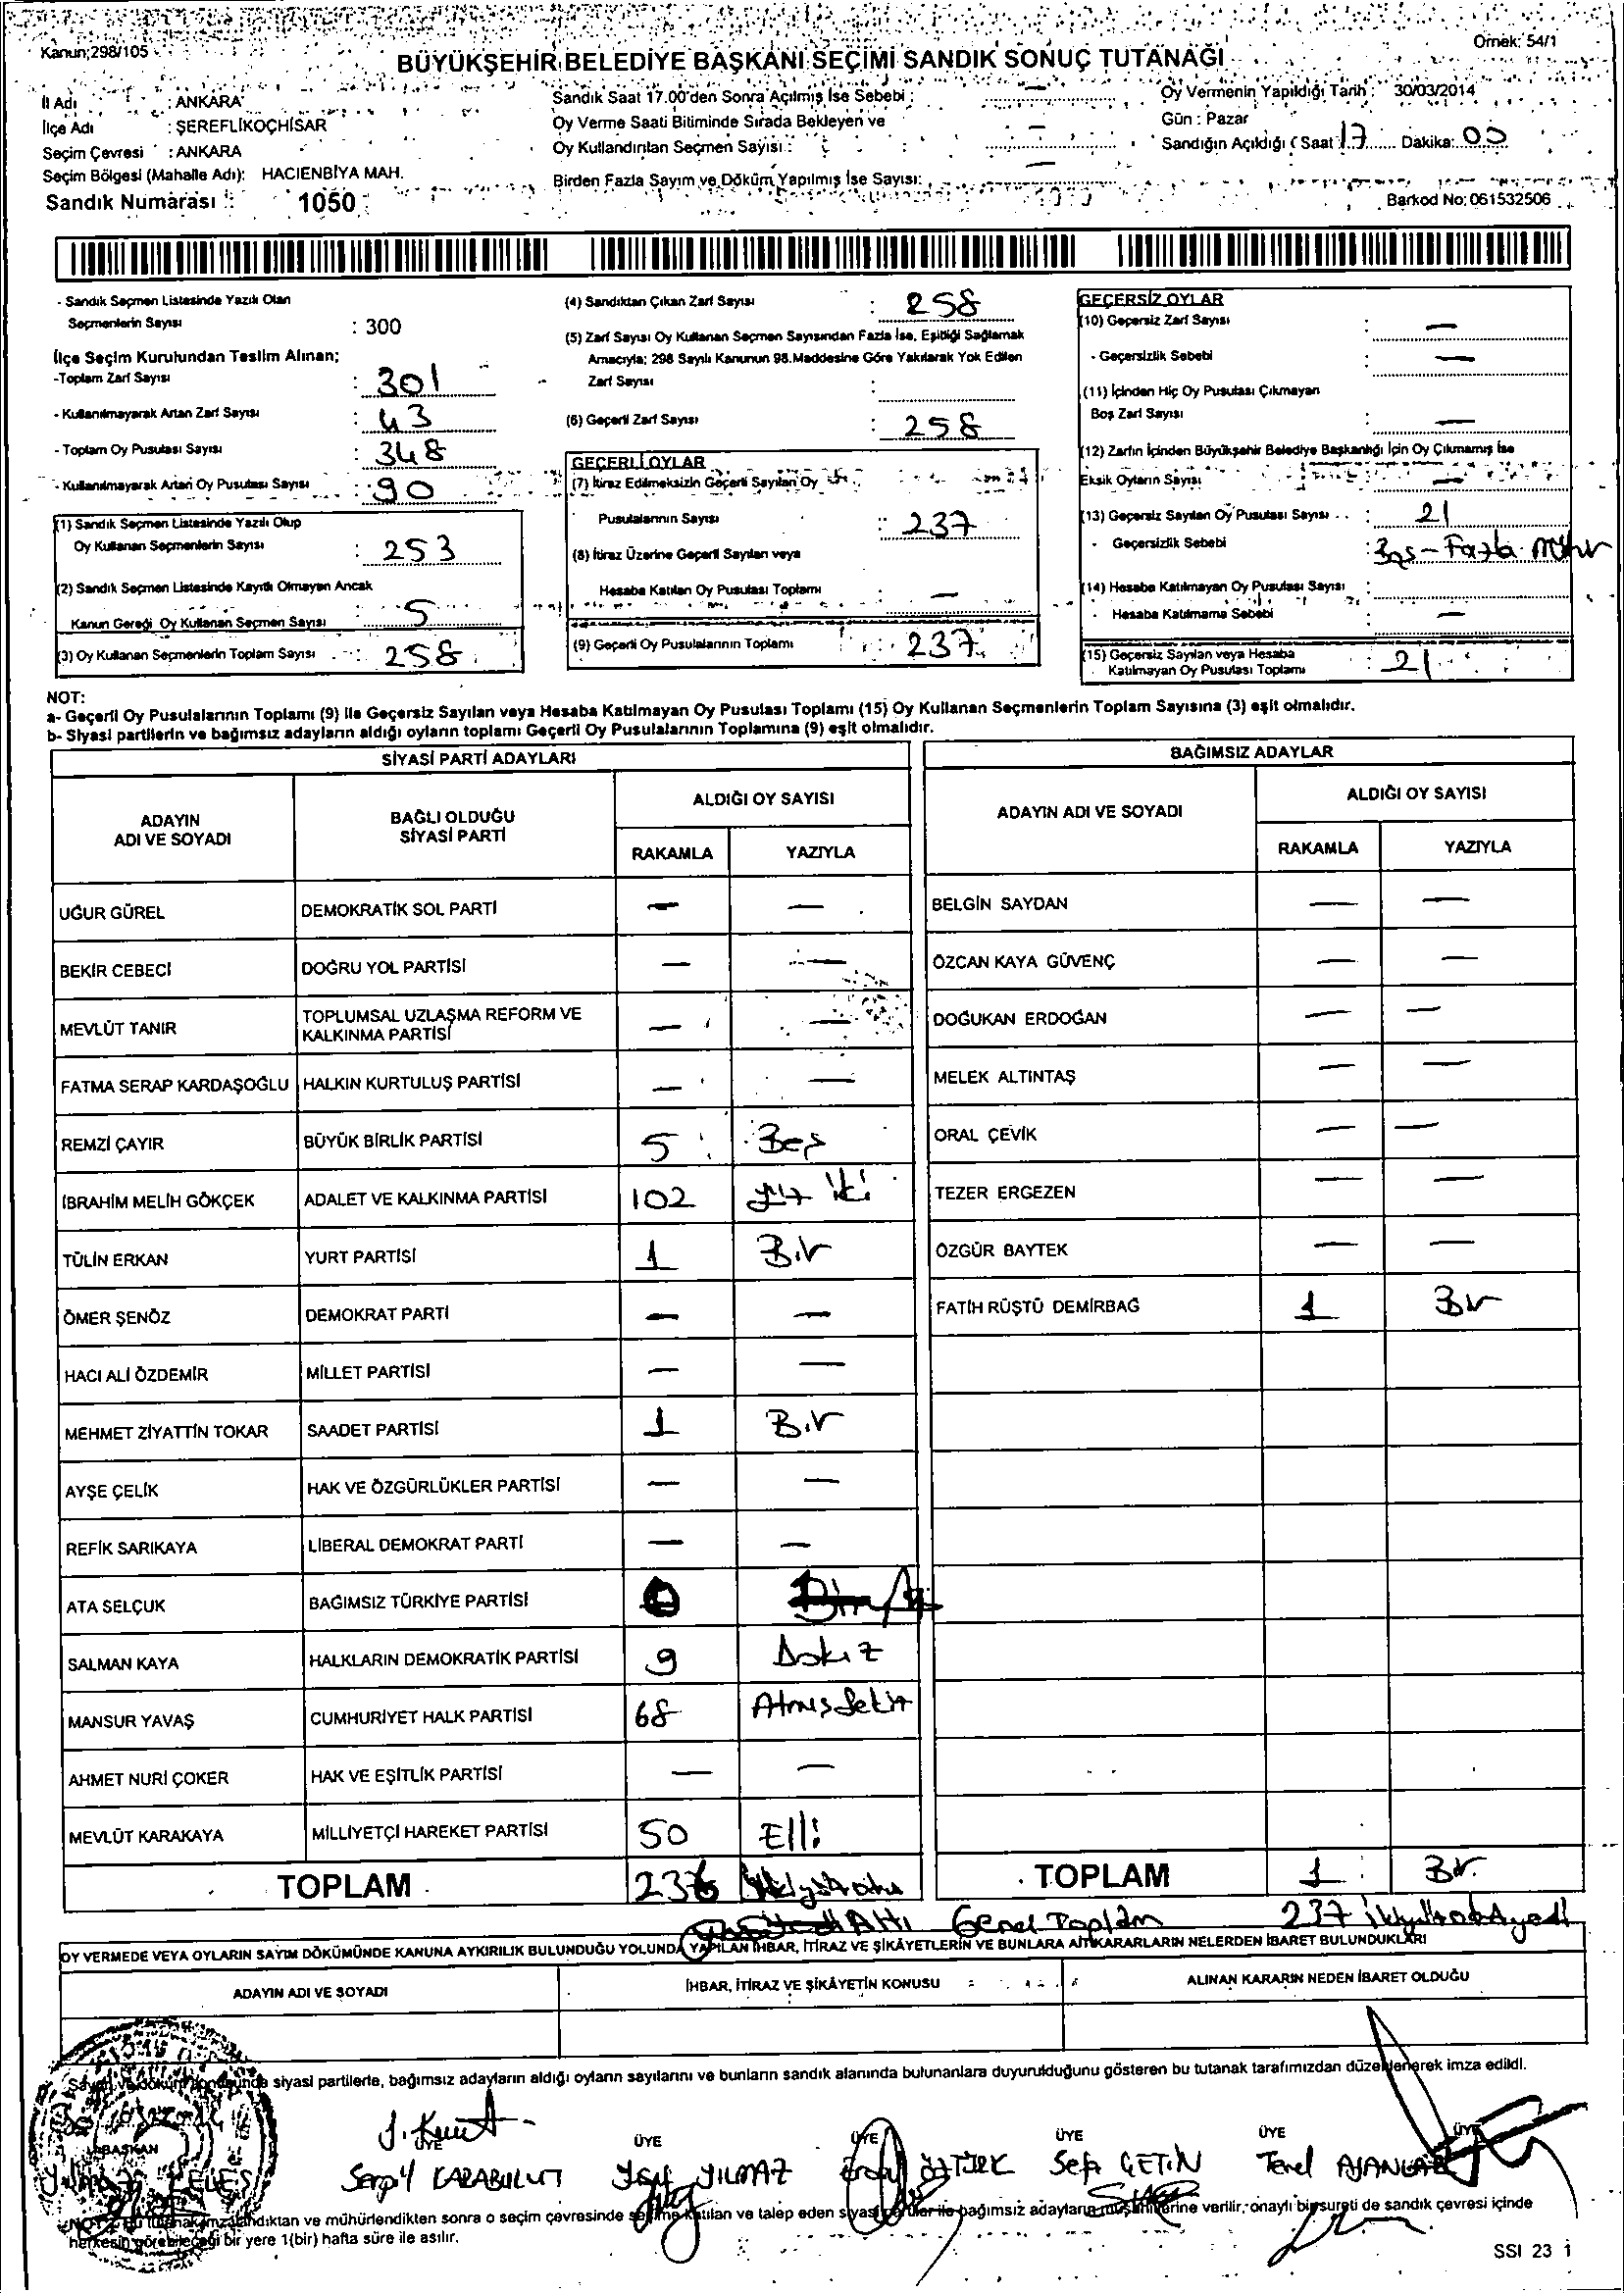 Kanun;298/105
Örnek: 54/1
BÜYÜKŞEHİR BELEDİYE BAŞKANI SEÇİMİ SANDIK SONUÇ TUTANAĞI
İl Adı : ANKARA
İlçe Adı : ŞEREFLİKOÇHİSAR
Seçim Çevresi : ANKARA
Seçim Bölgesi (Mahalle Adı): HACIENBİYA MAH.
Sandık Numarası : 1050
Sandık Saat 17.00'den Sonra Açılmış İse Sebebi : —
Oy Verme Saati Bitiminde Sırada Bekleyen ve
Oy Kullandırılan Seçmen Sayısı : —
Birden Fazla Sayım ve Döküm Yapılmış İse Sayısı: —
Oy Vermenin Yapıldığı Tarih : 30/03/2014
Gün : Pazar
Sandığın Açıldığı (Saat 17 Dakika: 00
Barkod No: 061532506
- Sandık Seçmen Listesinde Yazılı Olan
Seçmenlerin Sayısı : 300
İlçe Seçim Kurulundan Teslim Alınan;
-Toplam Zarf Sayısı : 301
- Kullanılmayarak Artan Zarf Sayısı : 43
- Toplam Oy Pusulası Sayısı : 348
- Kullanılmayarak Artan Oy Pusulası Sayısı : 90
(1) Sandık Seçmen Listesinde Yazılı Olup
Oy Kullanan Seçmenlerin Sayısı : 253
(2) Sandık Seçmen Listesinde Kayıtlı Olmayan Ancak
Kanun Gereği Oy Kullanan Seçmen Sayısı 5
(3) Oy Kullanan Seçmenlerin Toplam Sayısı : 258
(4) Sandıktan Çıkan Zarf Sayısı : 258
(5) Zarf Sayısı Oy Kullanan Seçmen Sayısından Fazla İse, Eşitliği Sağlamak
Amacıyla; 298 Sayılı Kanunun 98.Maddesine Göre Yakılarak Yok Edilen
Zarf Sayısı :
(6) Geçerli Zarf Sayısı : 258
GEÇERLİ OYLAR
(7) İtiraz Edilmeksizin Geçerli Sayılan Oy
Pusulalarının Sayısı : 237
(8) İtiraz Üzerine Geçerli Sayılan veya
Hesaba Katılan Oy Pusulası Toplamı : —
(9) Geçerli Oy Pusulalarının Toplamı : 237
GEÇERSİZ OYLAR
(10) Geçersiz Zarf Sayısı : —
- Geçersizlik Sebebi : —
(11) İçinden Hiç Oy Pusulası Çıkmayan
Boş Zarf Sayısı : —
(12) Zarfın İçinden Büyükşehir Belediye Başkanlığı İçin Oy Çıkmamış İse
Eksik Oyların Sayısı : —
(13) Geçersiz Sayılan Oy Pusulası Sayısı : 21
- Geçersizlik Sebebi : Boş - Fazla mühür
(14) Hesaba Katılmayan Oy Pusulası Sayısı :
- Hesaba Katılmama Sebebi : —
(15) Geçersiz Sayılan veya Hesaba
Katılmayan Oy Pusulası Toplamı : 21
NOT:
a- Geçerli Oy Pusulalarının Toplamı (9) ile Geçersiz Sayılan veya Hesaba Katılmayan Oy Pusulası Toplamı (15) Oy Kullanan Seçmenlerin Toplam Sayısına (3) eşit olmalıdır.
b- Siyasi partilerin ve bağımsız adayların aldığı oyların toplamı Geçerli Oy Pusulalarının Toplamına (9) eşit olmalıdır.
SİYASİ PARTİ ADAYLARI
ADAYIN ADI VE SOYADI BAĞLI OLDUĞU SİYASİ PARTİ ALDIĞI OY SAYISI
RAKAMLA YAZIYLA
UĞUR GÜREL DEMOKRATİK SOL PARTİ — —
BEKİR CEBECİ DOĞRU YOL PARTİSİ — —
MEVLÜT TANIR TOPLUMSAL UZLAŞMA REFORM VE KALKINMA PARTİSİ — —
FATMA SERAP KARDAŞOĞLU HALKIN KURTULUŞ PARTİSİ — —
REMZİ ÇAYIR BÜYÜK BİRLİK PARTİSİ 5 Beş
İBRAHİM MELİH GÖKÇEK ADALET VE KALKINMA PARTİSİ 102 yüz iki
TÜLİN ERKAN YURT PARTİSİ 1 Bir
ÖMER ŞENÖZ DEMOKRAT PARTİ — —
HACI ALİ ÖZDEMİR MİLLET PARTİSİ — —
MEHMET ZİYATTİN TOKAR SAADET PARTİSİ 1 Bir
AYŞE ÇELİK HAK VE ÖZGÜRLÜKLER PARTİSİ — —
REFİK SARIKAYA LİBERAL DEMOKRAT PARTİ — —
ATA SELÇUK BAĞIMSIZ TÜRKİYE PARTİSİ
SALMAN KAYA HALKLARIN DEMOKRATİK PARTİSİ 9 Dokuz
MANSUR YAVAŞ CUMHURİYET HALK PARTİSİ 68 Atmış Sekiz
AHMET NURİ ÇOKER HAK VE EŞİTLİK PARTİSİ — —
MEVLÜT KARAKAYA MİLLİYETÇİ HAREKET PARTİSİ 50 Elli
TOPLAM 236
BAĞIMSIZ ADAYLAR
ADAYIN ADI VE SOYADI ALDIĞI OY SAYISI
RAKAMLA YAZIYLA
BELGİN SAYDAN — —
ÖZCAN KAYA GÜVENÇ — —
DOĞUKAN ERDOĞAN — —
MELEK ALTINTAŞ — —
ORAL ÇEVİK — —
TEZER ERGEZEN — —
ÖZGÜR BAYTEK — —
FATİH RÜŞTÜ DEMİRBAĞ 1 Bir
TOPLAM 1 Bir
Altı Genel Toplam 237
OY VERMEDE VEYA OYLARIN SAYIM DÖKÜMÜNDE KANUNA AYKIRILIK BULUNDUĞU YOLUNDA YAPILAN İHBAR, İTİRAZ VE ŞİKÂYETLERİN VE BUNLARA AİT KARARLARIN NELERDEN İBARET BULUNDUKLARI
ADAYIN ADI VE SOYADI İHBAR, İTİRAZ VE ŞİKÂYETİN KONUSU ALINAN KARARIN NEDEN İBARET OLDUĞU
Sayım ve döküm sonucunda siyasi partilerle, bağımsız adayların aldığı oyların sayılarını ve bunların sandık alanında bulunanlara duyurulduğunu gösteren bu tutanak tarafımızdan düzenlenerek imza edildi.
BAŞKAN ÜYE ÜYE ÜYE ÜYE ÜYE ÜYE
KELEŞ Serpil KARABULUT YILMAZ ÖZTÜRK Sefa ÇETİN
NOT: Bu tutanak imzalandıktan ve mühürlendikten sonra o seçim çevresinde seçime katılan ve talep eden siyasi partiler ile bağımsız adayların müşahitlerine verilir, onaylı bir sureti de sandık çevresi içinde
herkesin görebileceği bir yere 1(bir) hafta süre ile asılır.
SSI 23 1